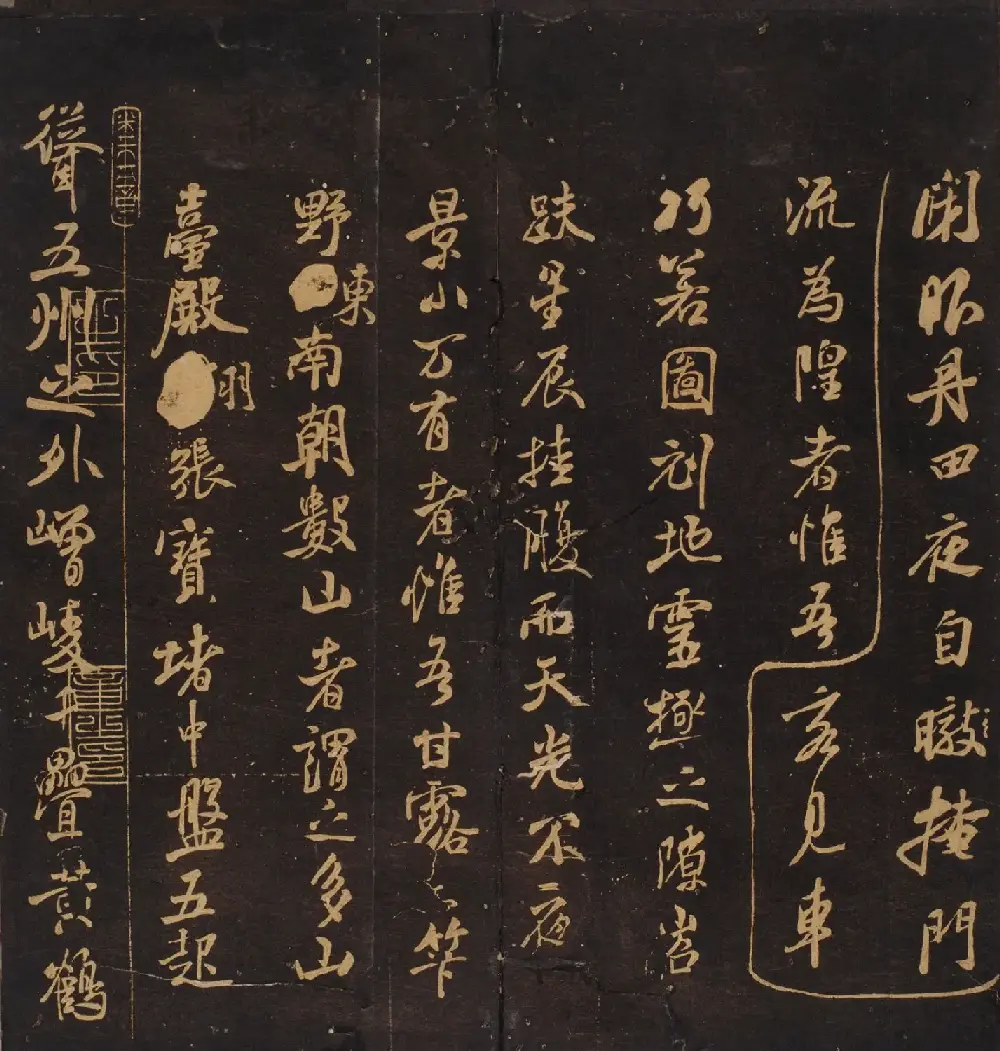 閉眼丹田夜自暾掩門
流為隍者惟吾客見車
巧若圖刻地靈極之隙岩
趺星辰挂腹而天光不夜
景小万有者惟吾甘露之笮
野東南朝數山者謂之多山
臺殿羽張寶堵中盤五起
聳五州之外嶒崚冉疊黃鶴